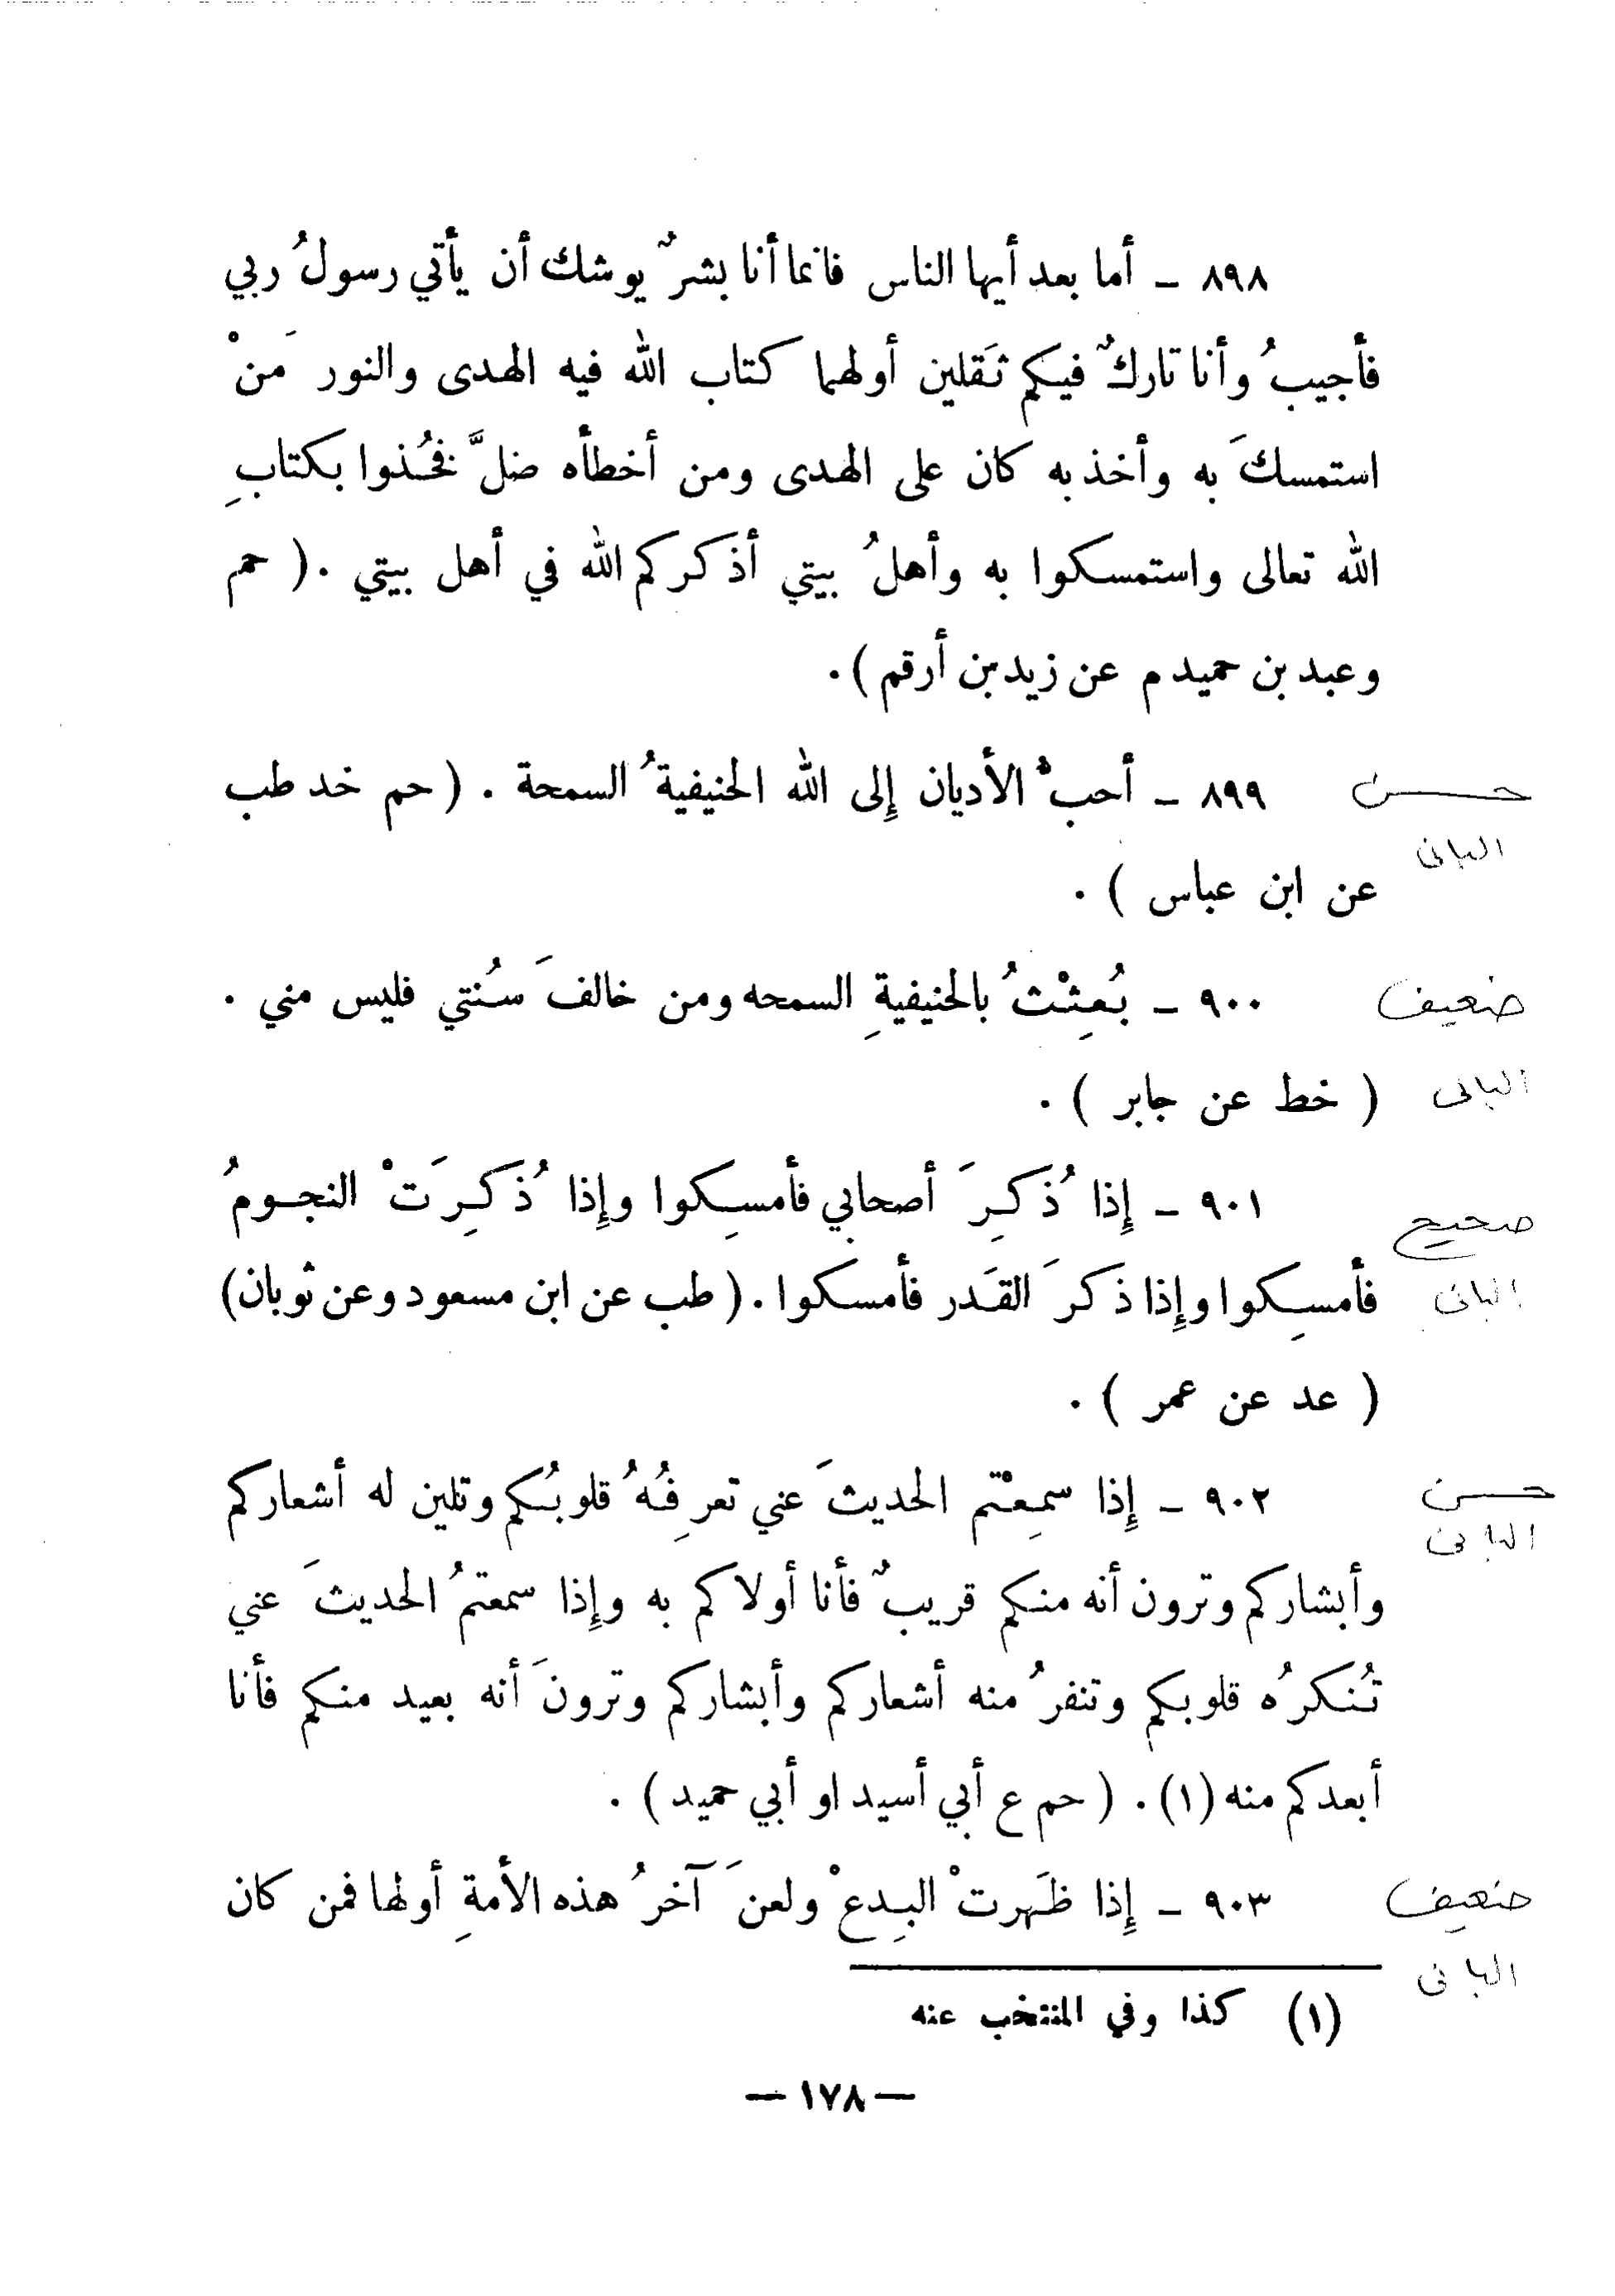 ٨٩٨ ـ أما بعد أيها الناس فانما أنا بشرٌ يوشك أن يأتي رسولُ ربي
فأجيبُ وأنا تاركٌ فيكم ثَقلين أولهما كتاب الله فيه الهدى والنور مَنْ
استمسكَ به وأخذ به كان على الهدى ومن أخطأه ضلَّ فخُذوا بكتابِ
الله تعالى واستمسكوا به وأهلُ بيتي أذكركم الله في أهل بيتي . ( حم
وعبد بن حميد م عن زيد بن أرقم ) .
٨٩٩ ـ أحبُّ الأديان إلى الله الحنيفيةُ السمحة . ( حم خد طب
حسن
البانى
عن ابن عباس ) .
٩٠٠ ـ بُعِثْتُ بالحنيفيةِ السمحه ومن خالفَ سُنتي فليس مني .
ضعيف
( خط عن جابر ) .
البانى
٩٠١ ـ إذا ذُكرِ َ أصحابي فأمسِكوا وإذا ذُكرِ َتْ النجومُ
صحيح
فأمسِكوا وإذا ذكرَ القَدر فأمسكوا . ( طب عن ابن مسعود وعن ثوبان )
البانى
( عد عن عمر ) .
٩٠٢ ـ إذا سمِعْتم الحديثَ عني تعرِفُهُ قلوبُكم وتلين له أشعاركم
حسن
البانى
وأبشاركم وترون أنه منكم قريبٌ فأنا أولاكم به وإذا سمعتمُ الحديثَ عني
تُنكرُه قلوبكم وتنفرُ منه أشعاركم وأبشاركم وترونَ أنه بعيد منكم فأنا
أبعدكم منه (١) . ( حم ع أبي أسيد او أبي حميد ) .
٩٠٣ ـ إذا ظَهرتْ البِدعْ ولعنَ آخرُ هذه الأمةِ أولها فمن كان
ضعيف
البانى
(١) كذا وفي المنتخب عنه
— ١٧٨ —